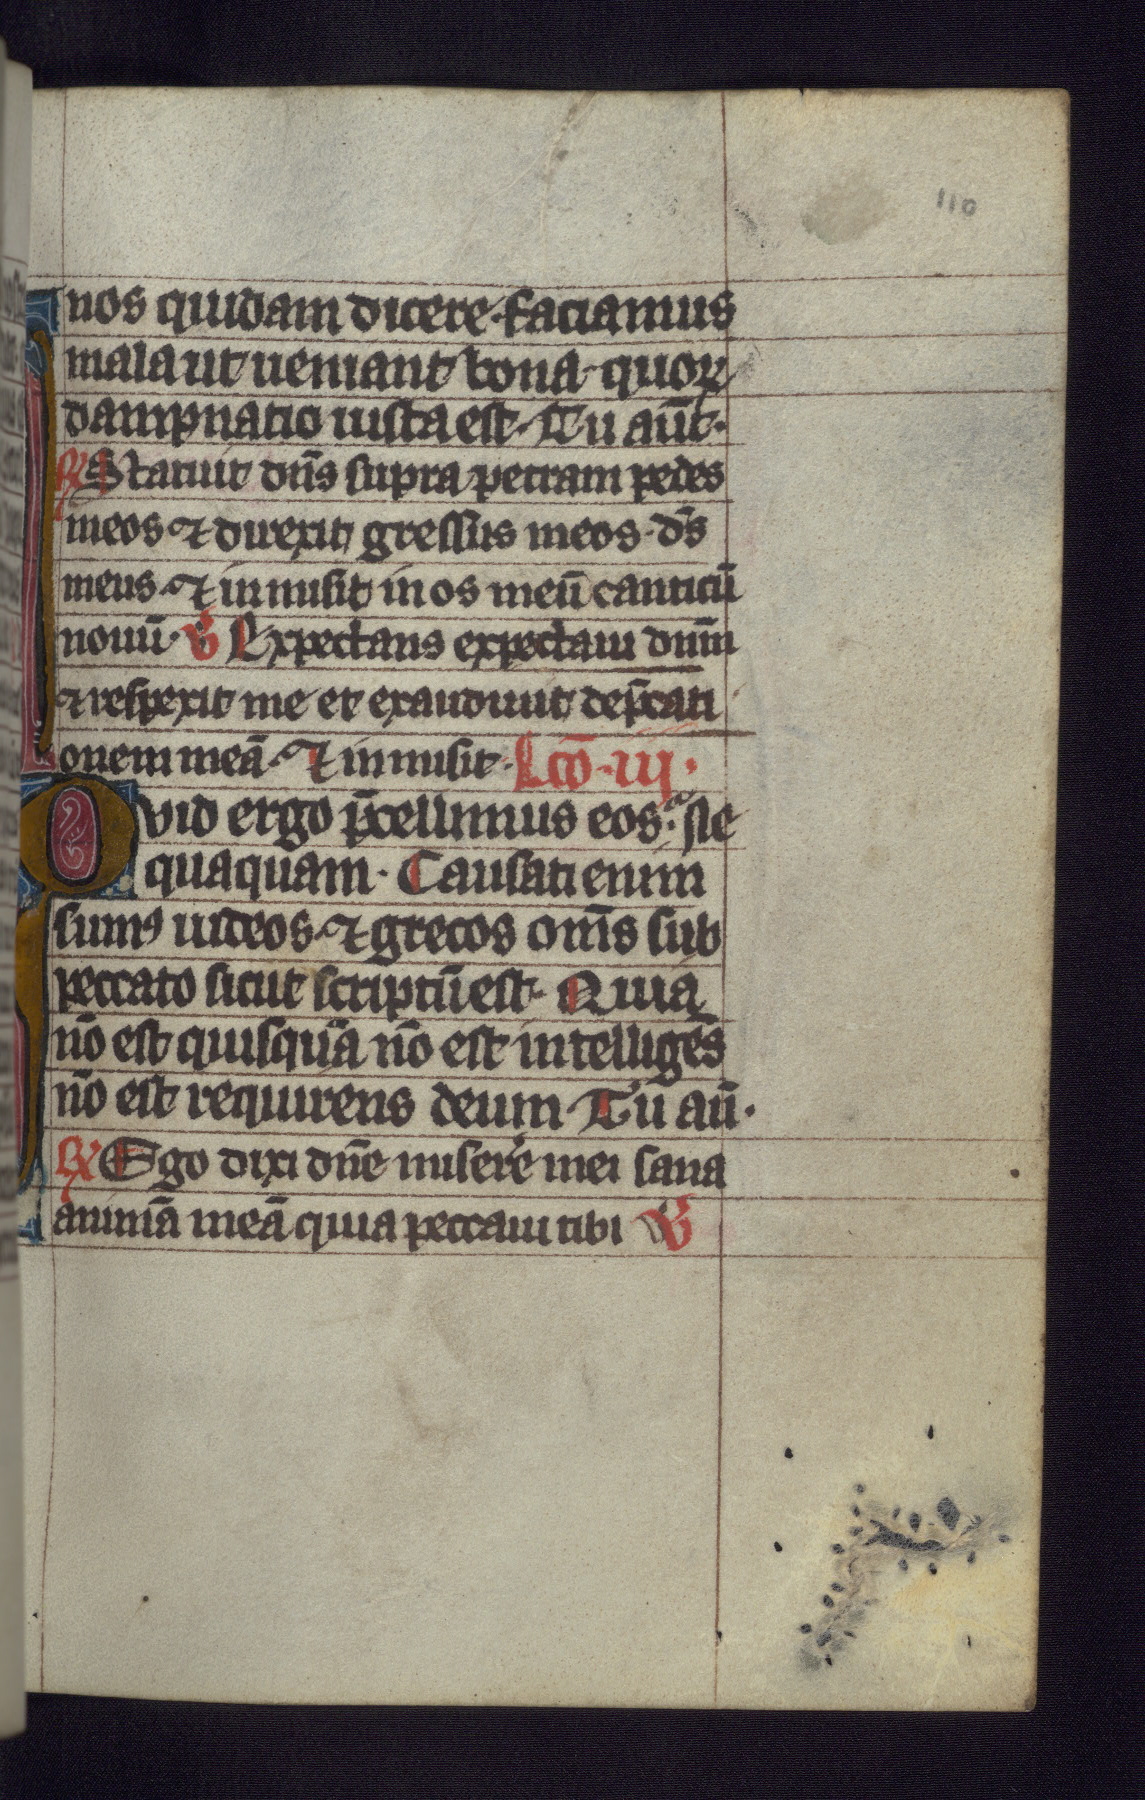 110
nos quidam dicere · faciamus
mala ut ueniant bona · quoꝝ
dampnatio iusta est · Tu aut̄ ·
℟ Statuit dn̄s supra petram pedes
meos ⁊ direxit gressus meos · ds̄
meus · ⁊ inmisit in os meū canticū
nouū · ℣ Expectans expectaui dnm̄
⁊ respexit me et exaudiuit dep̄cati
onem meā · ⁊ inmisit · Lco̅ · iij ·
Quid ergo p̄cellimus eos · Ne
quaquam · Causati enim
sumꝰ iudeos · ⁊ grecos om̄s sub
peccato sicut scriptū est · Quia
nō est quisquā nō est intelligēs
nō est requirens deum · Tu aū ·
℟ Ego dixi dn̄e misere mei sana
animā meā quia peccaui tibi ℣